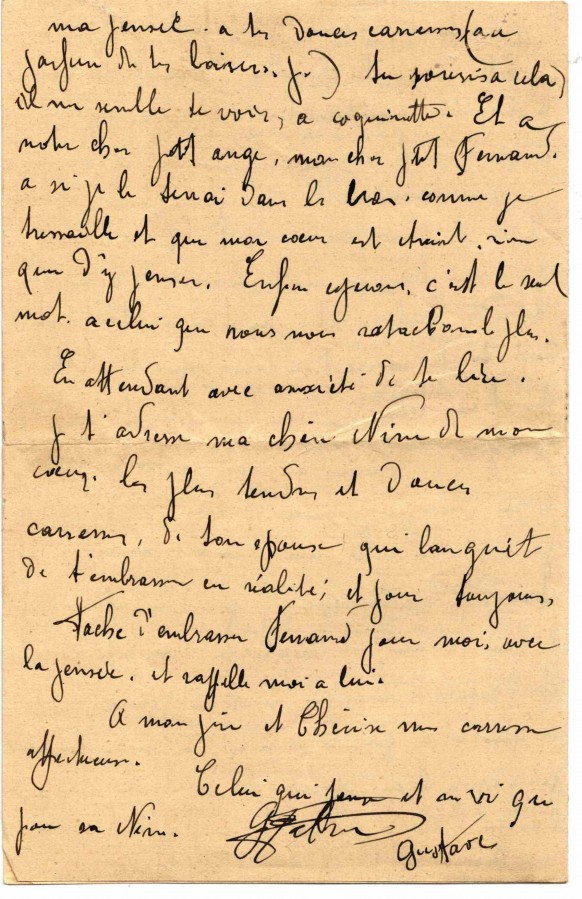 ma pensée. a tes Douces carresses (au
parfum de tes baisers. j.) tu souris a cela
il me semble te voir, a coquinette. Et a
notre cher ptit ange, mon cher ptit Fernand.
a si je le tenai dans les bras. comme je
tressaille et que mon coeur est étreint, rien
que d'y penser. Enfin esperons, c'est le seul
mot. a celui que nous nous ratachons le plus.
En attendant avec anxiété de te lire.
j t'adresse ma chère Nine de mon
coeur. les plus tendres et Douces
carresses, de ton epoux qui languit
de t'embrasser en réalité; et pour toujours,
Tache d'embrasser Fernand pour moi, avec
la pensée. et rappelle moi a lui.
A mon père et Thérèse mes carresses
affectueuses.
Celui qui pense et an vi que
pour sa Nine.
Gustave